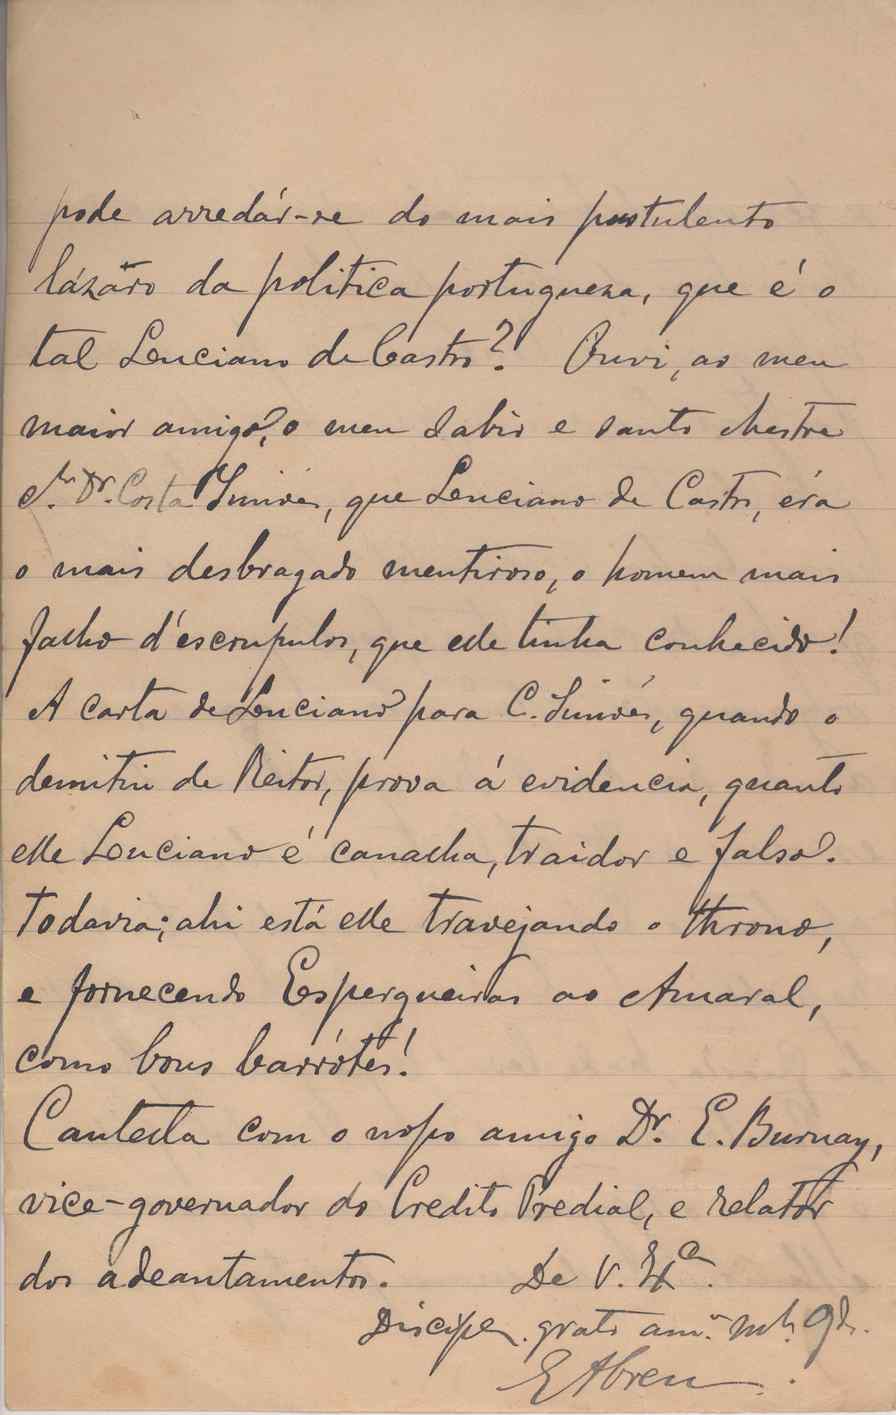 pode arredár-se do mais pustulento
lázaro da politica portugueza, que é o
tal Luciano de Castro? Ouvi, ao meu
maior amigo, o meu sabio e santo Mestre
Sr. Dr. Costa Simões, que Luciano de Castro, éra
o mais desbragado mentiroso, o homem mais
falho d'escrupulos, que elle tinha conhecido!
A carta de Luciano para C. Simões, quando o
demitiu de Reitor, prova á evidencia, quanto
elle Luciano é canalha, traidor e falso.
Todavia; ahi está elle travejando o throno,
e fornecendo Espergueiras ao Amaral,
como bons barrótes!
Cautella com o nosso amigo Dr. E. Burnay,
vice-governador do Credito Predial, e relator
dos adeantamentos. De V. Exa.
Discip. grato amo. mto. gdo.
E Abreu